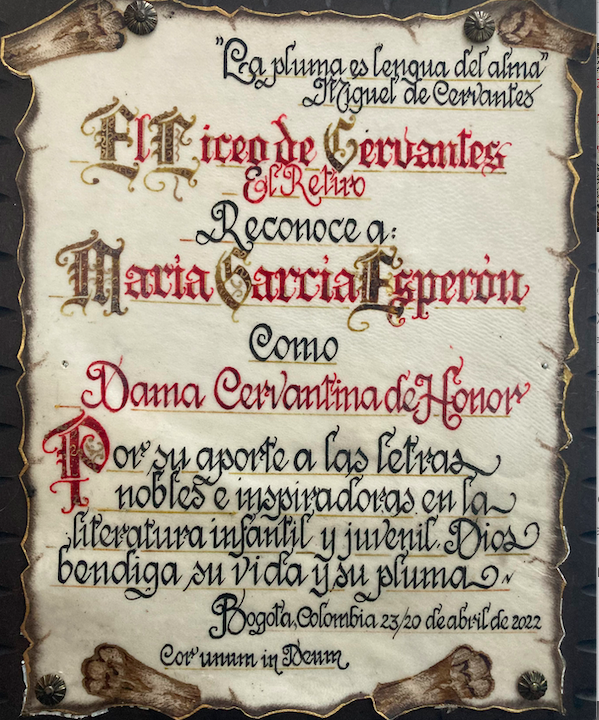 "La pluma es lengua del alma"
Miguel de Cervantes
El Liceo de Cervantes
El Retiro
Reconoce a:
María García Esperón
Como
Dama Cervantina de Honor
Por su aporte a las letras
nobles e inspiradoras en la
literatura infantil y juvenil. Dios
bendiga su vida y su pluma
Bogotá, Colombia 23/20 de abril de 2022
Cor unum in Deum